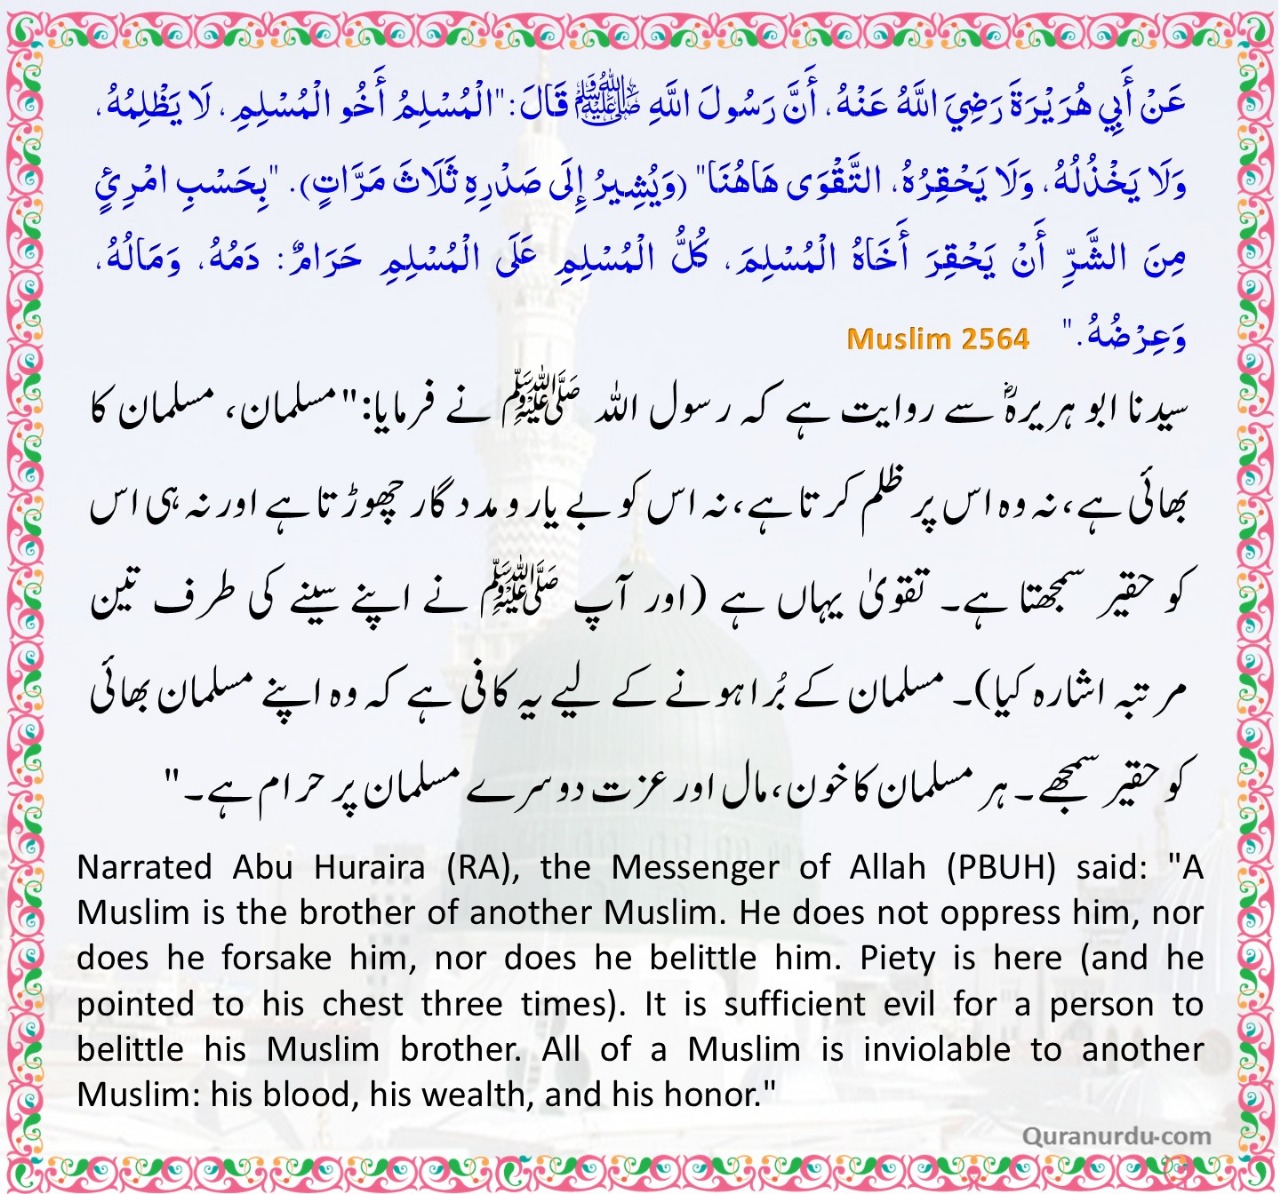 عَنْ أَبِي هُرَيْرَةَ رَضِيَ اللَّهُ عَنْهُ، أَنَّ رَسُولَ اللَّهِ ﷺ قَالَ: "الْمُسْلِمُ أَخُو الْمُسْلِمِ، لَا يَظْلِمُهُ،
وَلَا يَخْذُلُهُ، وَلَا يَحْقِرُهُ، التَّقْوَى هَاهُنَا" (وَيُشِيرُ إِلَى صَدْرِهِ ثَلَاثَ مَرَّاتٍ). "بِحَسْبِ امْرِئٍ
مِنَ الشَّرِّ أَنْ يَحْقِرَ أَخَاهُ الْمُسْلِمَ، كُلُّ الْمُسْلِمِ عَلَى الْمُسْلِمِ حَرَامٌ: دَمُهُ، وَمَالُهُ،
وَعِرْضُهُ." Muslim 2564
سیدنا ابو ہریرہؓ سے روایت ہے کہ رسول اللہ ﷺ نے فرمایا: "مسلمان، مسلمان کا
بھائی ہے، نہ وہ اس پر ظلم کرتا ہے، نہ اس کو بے یار و مددگار چھوڑتا ہے اور نہ ہی اس
کو حقیر سمجھتا ہے۔ تقویٰ یہاں ہے (اور آپ ﷺ نے اپنے سینے کی طرف تین
مرتبہ اشارہ کیا)۔ مسلمان کے بُرا ہونے کے لیے یہ کافی ہے کہ وہ اپنے مسلمان بھائی
کو حقیر سمجھے۔ ہر مسلمان کا خون، مال اور عزت دوسرے مسلمان پر حرام ہے۔"
Narrated Abu Huraira (RA), the Messenger of Allah (PBUH) said: "A
Muslim is the brother of another Muslim. He does not oppress him, nor
does he forsake him, nor does he belittle him. Piety is here (and he
pointed to his chest three times). It is sufficient evil for a person to
belittle his Muslim brother. All of a Muslim is inviolable to another
Muslim: his blood, his wealth, and his honor."
Quranurdu-com